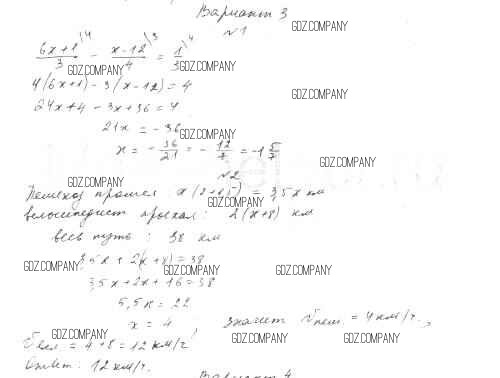 Вариант 3
№1
GDZ.COMPANY
6x+1/3 \4 - x-12/4 \3 = 1/3 \4
GDZ.COMPANY
GDZ.COMPANY
4(6x+1) - 3(x-12) = 4
GDZ.COMPANY
24x+4 - 3x+36 = 4
21x = -36
GDZ.COMPANY
x = -36/21 = -12/7 = -1 5/7
GDZ.COMPANY
№2
GDZ.COMPANY
Пешеход прошел x(2+1,5) = 3,5x км
GDZ.COMPANY
велосипедист проехал: 2(x+8) км
весь путь: 38 км
3,5x + 2(x+8) = 38
GDZ.COMPANY GDZ.COMPANY GDZ.COMPANY
3,5x + 2x + 16 = 38
5,5x = 22
x = 4 значит Vпеш. = 4 км/ч.,
GDZ.COMPANY GDZ.COMPANY GDZ.COMPANY
Vвел. = 4+8 = 12 км/ч
Ответ: 12 км/ч.
GDZ.COMPANY
Вариант 4